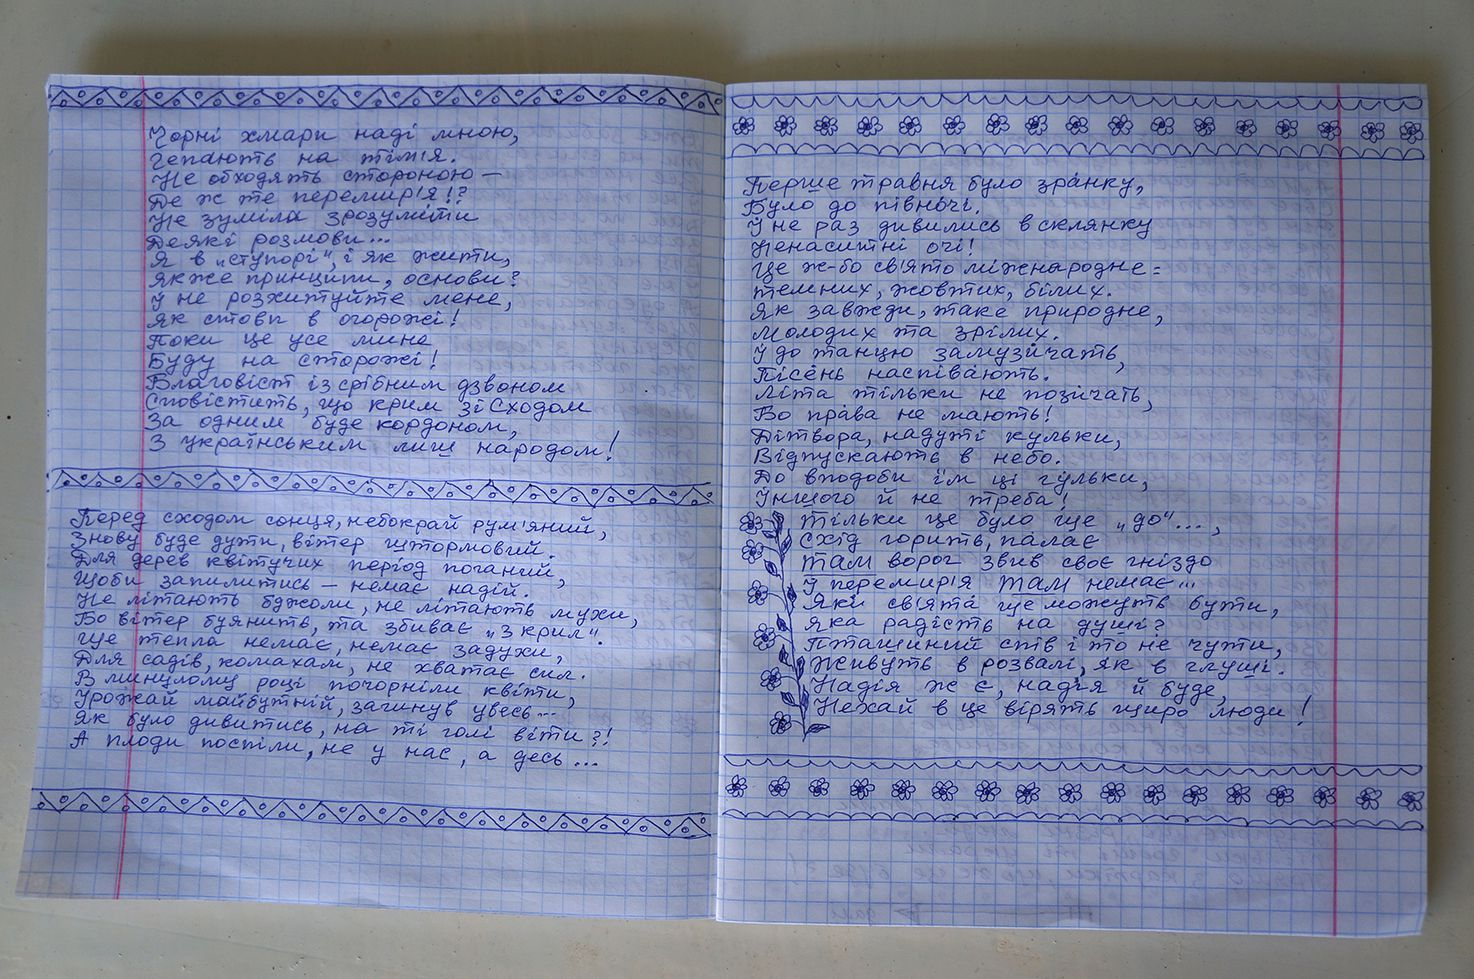 Чорні хмари наді мною,
Чепають на тім'я.
Не обходять стороною –
Де ж те перемир'я!?
Не зуміла зрозуміти
Деякі розмови...
Я в „ступорі", і як жити,
Які ж принципи, основи?
Й не розхитуйте мене,
Як стовп в огорожі!
Поки це усе мине
Буду на сторожі!
Благовіст із срібним дзвоном
Сповістить, що крим зі Сходом
За одним буде кордоном,
З українським лиш народом!
Перед сходом сонця, небокрай рум'яний,
Знову буде дути, вітер штормовий.
Для дерев квітучих період поганий,
Щоби запилитись – немає надій.
Не літають бджоли, не літають мухи,
Бо вітер буянить, та збиває „з крил".
Ще тепла немає, немає задухи,
Для садів, комахам, не хватає сил.
В минулому році почорніли квіти,
Урожай майбутній, загинув увесь...
Як було дивитись, на ті голі віти?!
А плоди поспіли, не у нас, а десь...
Перше травня було зранку,
Було до півночі.
Й не раз дивились в склянку
Ненаситні очі!
Це ж-бо свято міжнародне:
темних, жовтих, білих.
Як завжди, таке природне,
Молодих та зрілих.
Й до танцю замузичать,
Пісень наспівають.
Літа тільки не позичать,
Бо права не мають!
Дітвора, надуті кульки,
Відпускають в небо.
До вподоби їм ці гульки,
Іншого й не треба!
Тільки це було ще „до"...,
Схід горить, палає
Там ворог звив своє гніздо
Й перемир'я там немає...
Які свята ще можуть бути,
Яка радість на душі?
Пташиний спів і то не чути,
Живуть в розвалі, як в глуші.
Надія ж є, надія й буде,
Нехай в це вірять щиро люди!